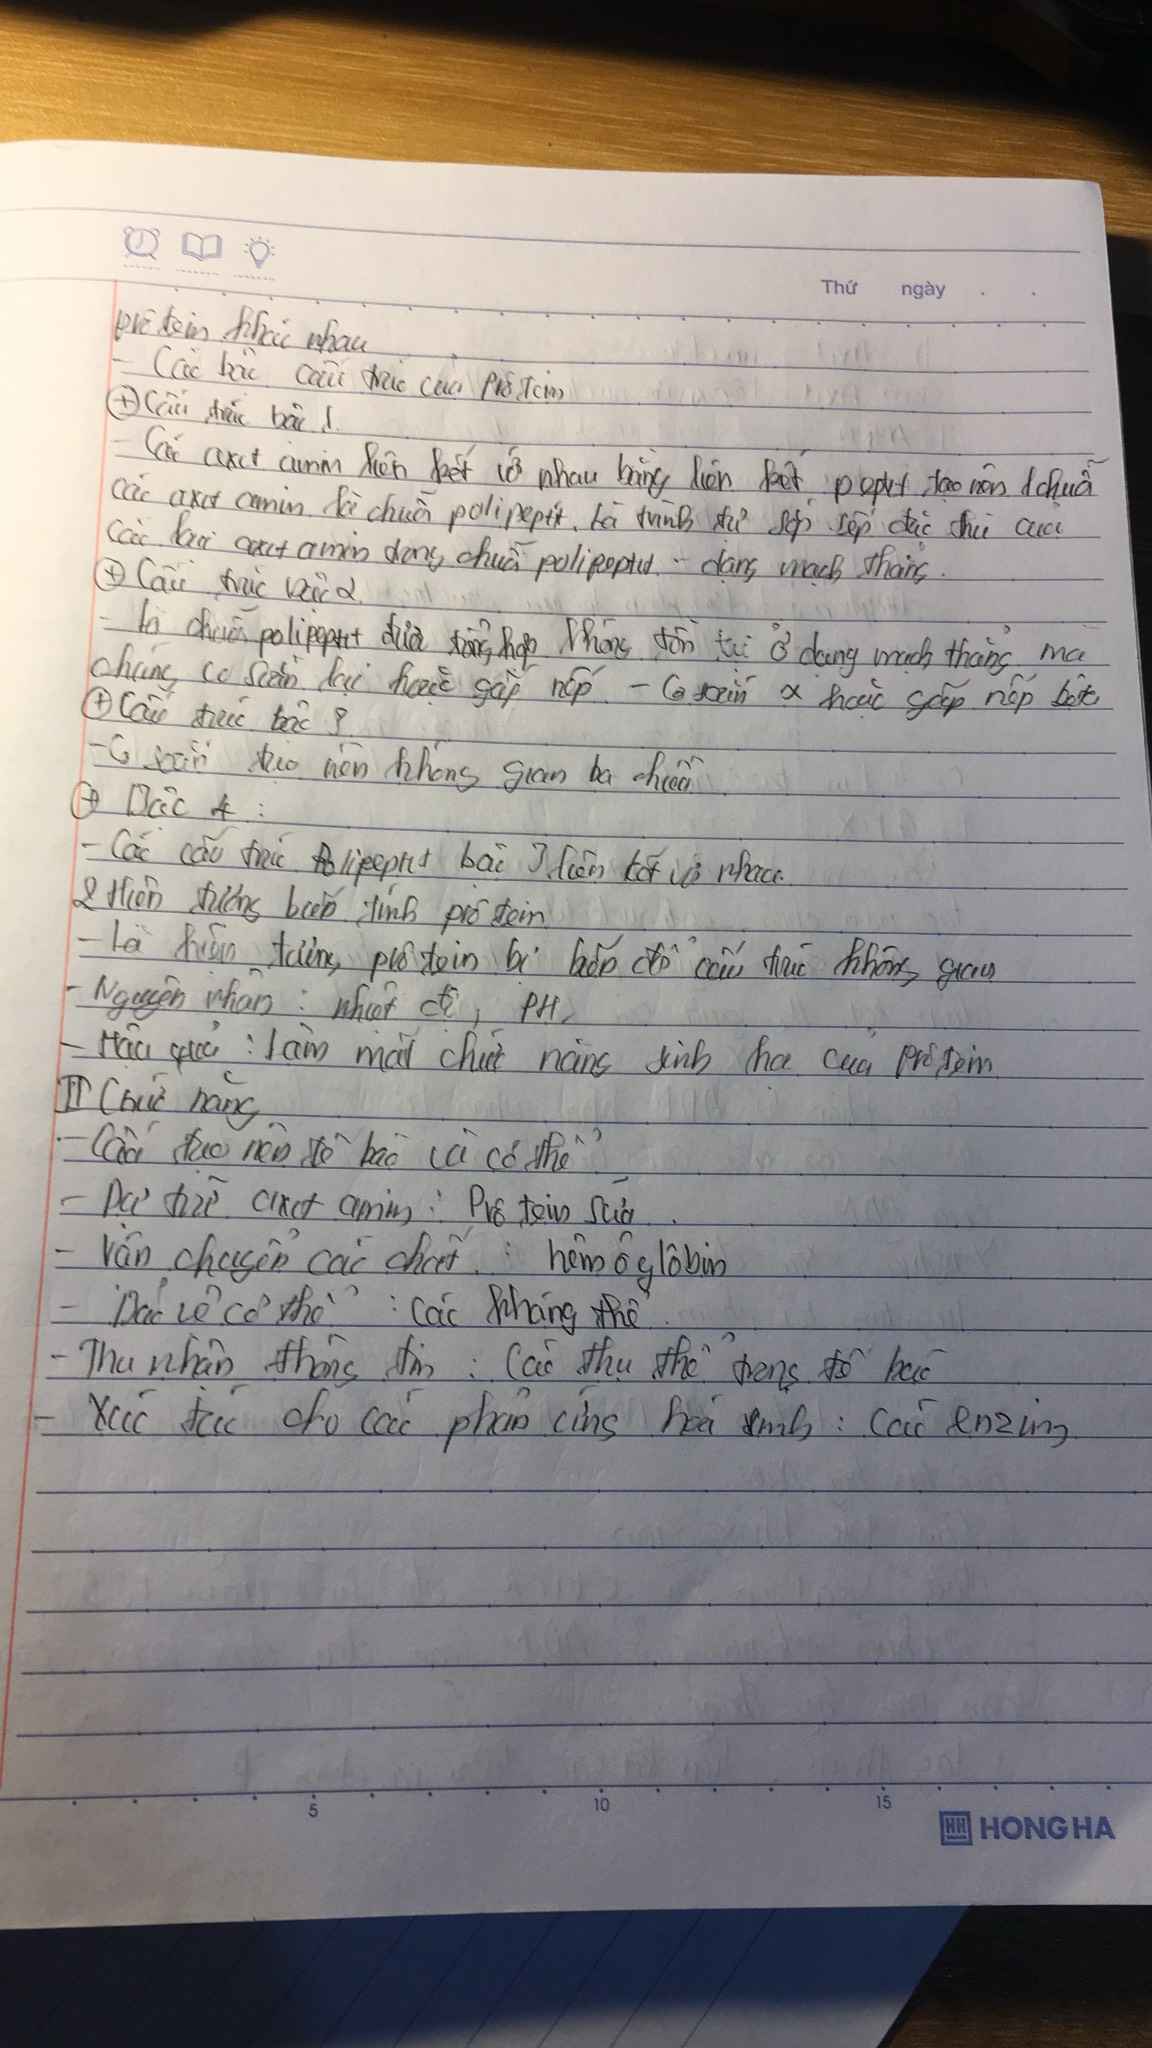 Thứ ngày
prôtêin khác nhau
- Các bậc cấu trúc của Prôtêin
+ Cấu trúc bậc 1.
- Các axit amin liên kết vớ nhau bằng liên kết peptit tạo nên 1 chuỗi
các axit amin là chuỗi polipeptit. Là trình tự sếp sếp đặc thù của
các loại axit amin trong chuỗi polipeptit - dạng mạch thẳng.
+ Cấu trúc bậc 2
- là chuỗi polipeptit đưa tổng hợp không tồn tại ở dạng mạch thẳng mà
chúng co xoắn lại hoặc gấp nếp - Co xoắn α hoặc gấp nếp bêta
+ Cấu trúc bậc 3
- Co xoắn tạo nên không gian ba chiều
+ Bậc 4 :
- Các cấu trúc Polipeptit bậc 3 liên kết vớ nhau.
2 Hiện tượng biến tính prôtêin
- Là hiện tượng prôtêin bị biến đổi cấu trúc không gian
- Nguyên nhân : nhiệt độ, PH,
- Hậu quả : làm mất chức năng sinh học của Prôtêin
II Chức năng
- Cấu tạo nên tế bào và cơ thể
- Dự trữ axit amin : Prôtêin sữa.
- Vận chuyển các chất : hêmôglôbin
- Bảo vệ cơ thể : các kháng thể.
- Thu nhận thông tin : Các thụ thể trong tế bào
- Xúc tác cho các phản ứng hoá sinh : các enzim
5 10 15
HH HONG HA